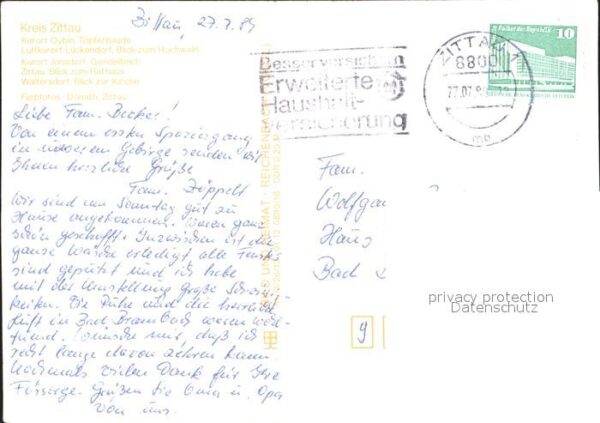 Zittau, 27.7.89
Kreis Zittau
Kurort Oybin, Töpferbaude
Luftkurort Lückendorf, Blick zum Hochwald
Kurort Jonsdorf, Gondelteich
Zittau, Blick zum Rathaus
Waltersdorf, Blick zur Kirche
Farbfotos: Donath, Zittau
Liebe Fam. Becker!
Von einem ersten Spaziergang
in unserem Gebirge senden wir
Ihnen herzliche Grüße
Fam. Zöppelt
Wir sind am Sonntag gut zu
Hause angekommen. Waren ganz
schön geschafft. Inzwischen ist die
ganze Wäsche erledigt alle Fenster
sind geputzt und ich habe
mit der Umstellung große Schwierig-
keiten. Die Ruhe und die herrliche
Luft in Bad Brambach waren
Wünsche mir, daß ich
recht lange davon zehren kann.
Nochmals vielen Dank für Ihre
Fürsorge. Grüßen Sie Oma u. Opa
von uns.
BILD UND HEIMAT REICHENBACH
Besser versichern
Erweiterte
Haushalt-
versicherung
ZITTAU 1
8800
27.07.89
mo
Palast der Republik
10
Fam.
Wolfga
Haus
Bad
9
privacy protection
Datenschutz